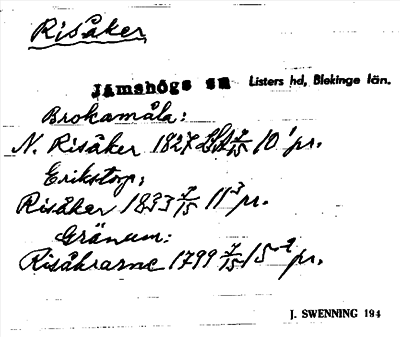 Risåker
Jämshögs sn Listers hd, Blekinge län.
Brokamåla:
N. Risåker 1827 10 pr.
Erikstorp:
Risåker 1833 7/15 11 pr.
Gränum:
Risåkrarne 1799 7/15 15 pr.
J. SWENNING 194